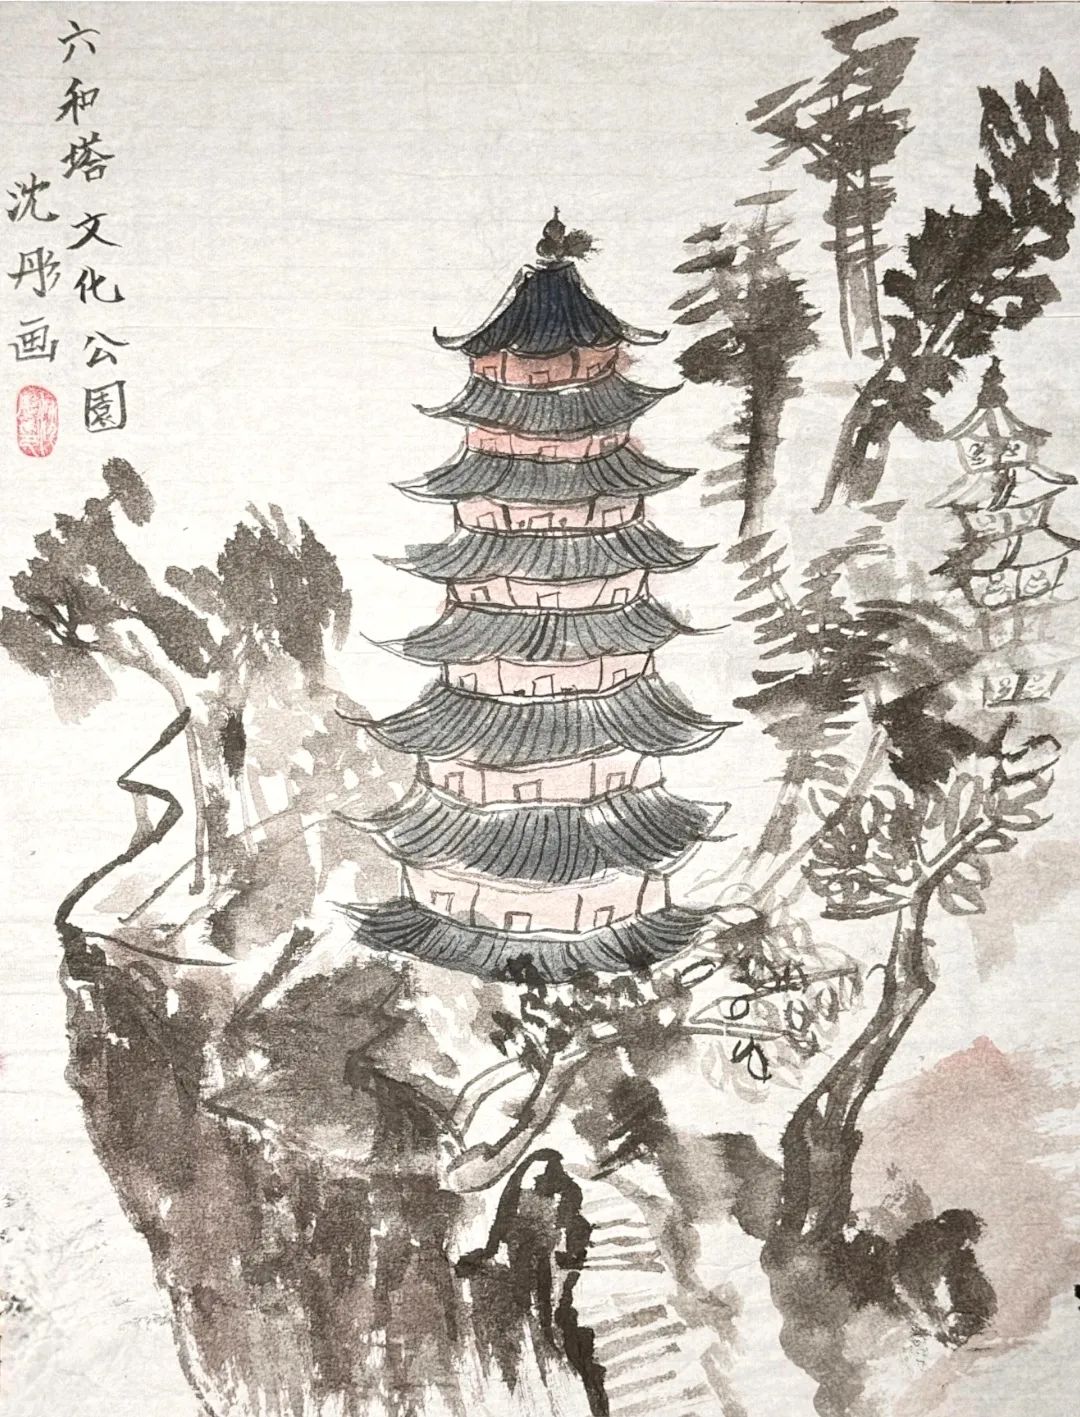 六和塔文化公園
沈彤画